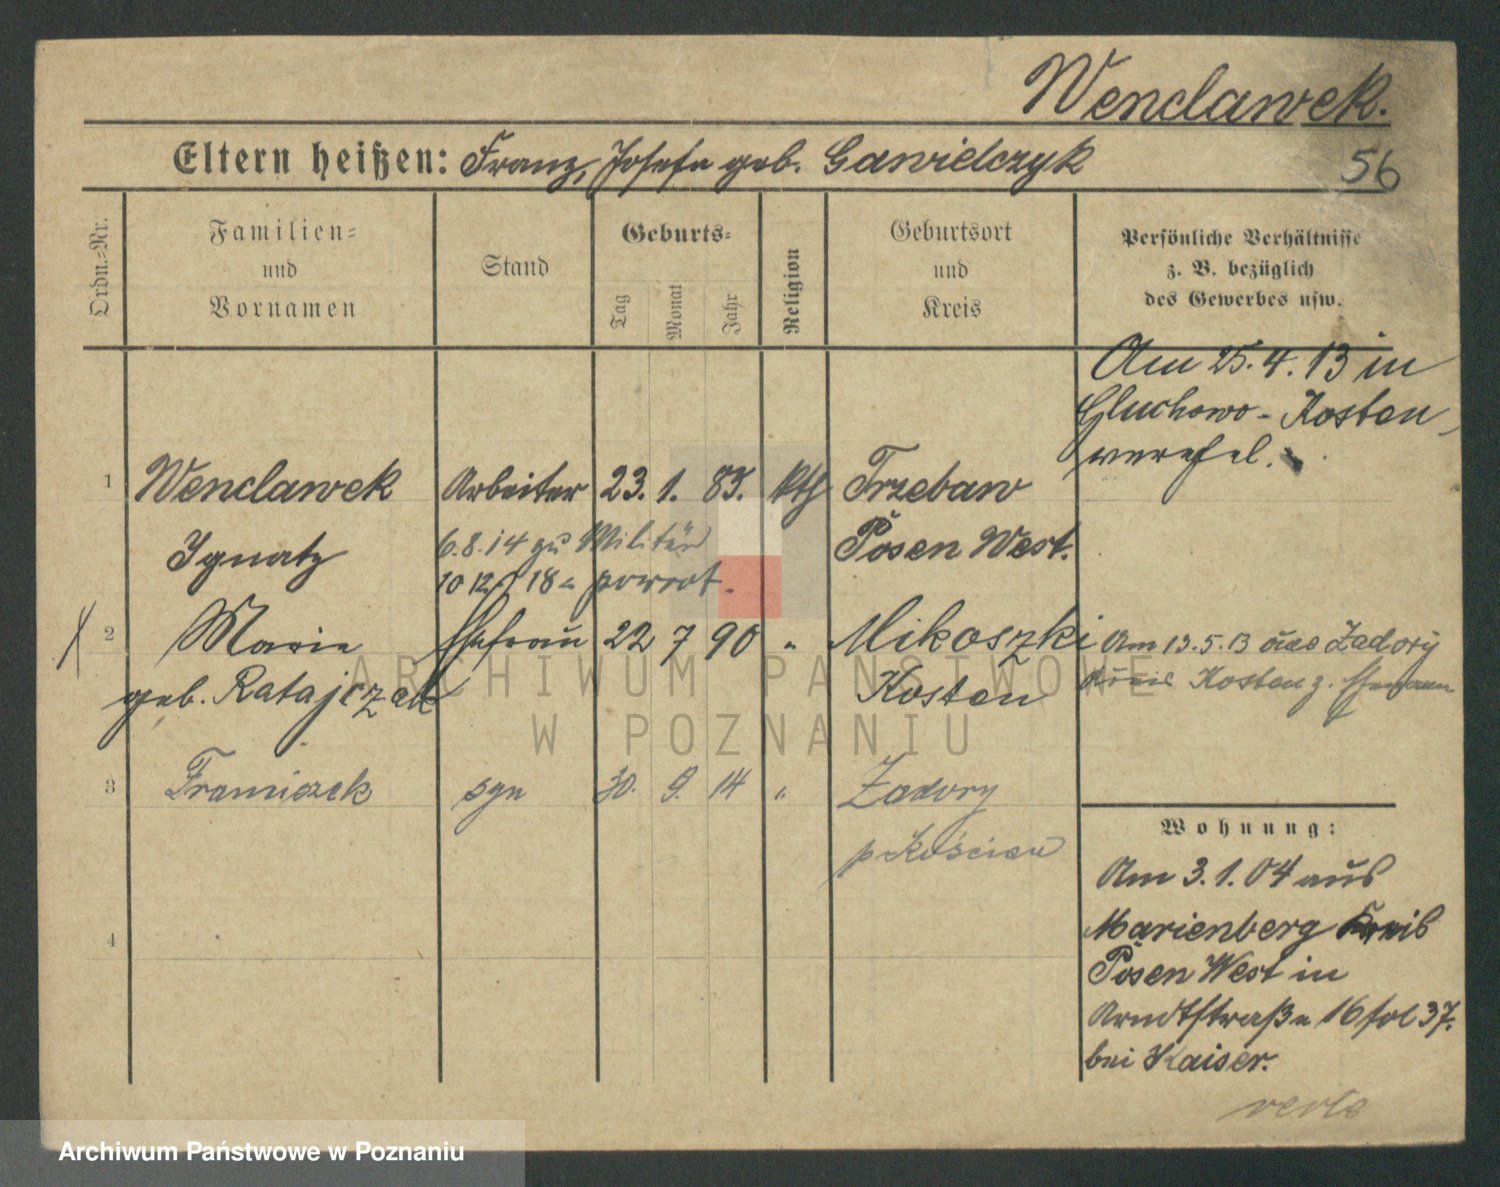 Wenclawek.
Eltern heißen: Franz, Josefa geb. Gawielczyk
56
Ordn.-Nr.
Familien-
und
Vornamen
Stand
Geburts-
Tag
Monat
Jahr
Religion
Geburtsort
und
Kreis
Persönliche Verhältnisse
z. B. bezüglich
des Gewerbes usw.
Am 25.4.13 in
Gluchowo - Kosten
verehel.
1 Wenclawek Arbeiter 23. 1. 83. kth Trzebaw
Ignatz
6.8.14 zu Militär
Posen West.
10 12 18 powrot.
2 Marie Ehefrau 22 7 90 " Mikoszki
geb. Ratajczak
Kosten
Am 13.5.13 aus Zadory
Kreis Kosten z. Ehemann
3 Franciszek syn 30. 9. 14 " Zadory
p Kościan
4
Wohnung:
Am 3.1.04 aus
Marienberg Kreis
Posen West in
Arndtstraße 16 fol 37.
bei Kaiser.
verte
ARCHIWUM PAŃSTWOWE
W POZNANIU
Archiwum Państwowe w Poznaniu